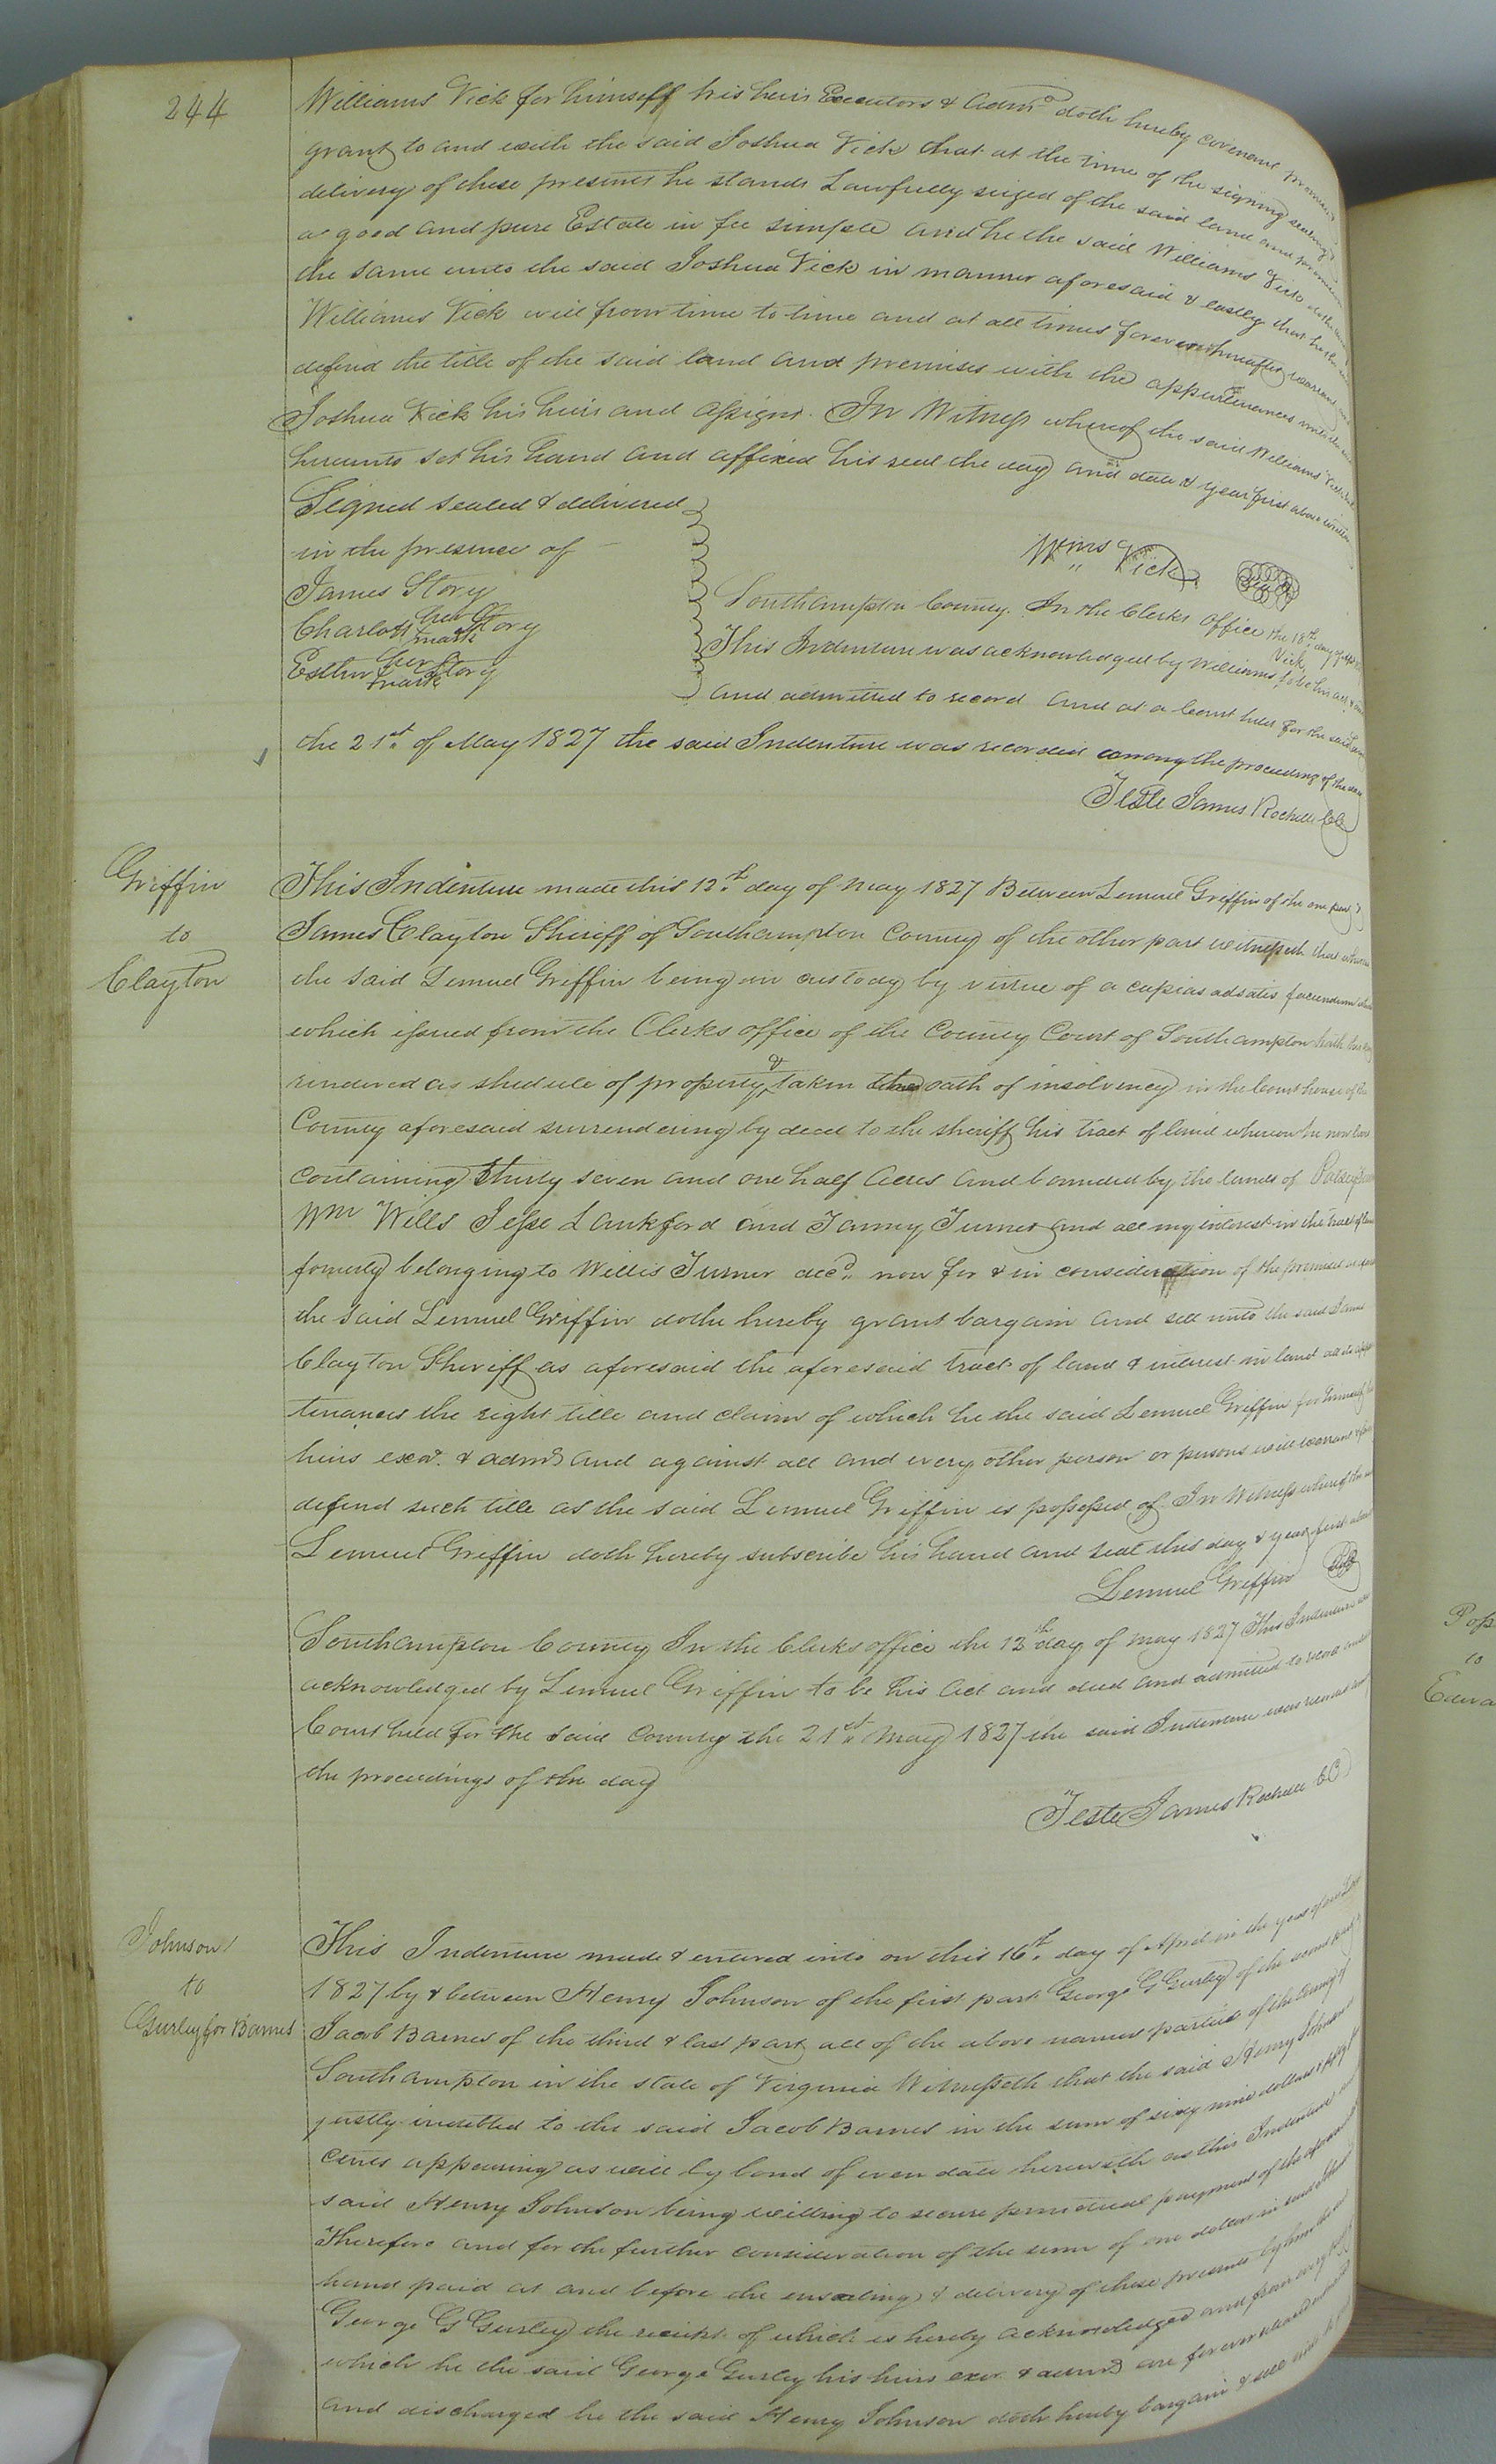 244
Williams Vick for himself his heirs Executors & Admrs doth hereby covenant
grant to and with the said Joshua Vick that at the time of the signing sealing
delivery of these presents he stands Lawfully seized of the said land and
a good and pure Estate in fee simple and he the said Williams Vick
the same unto the said Joshua Vick in manner aforesaid & lastly that he the
Williams Vick will from time to time and at all times forever hereafter warrant
defend the title of the said land and premises with the appurtenances unto the
Joshua Vick his heirs and assigns. In Witness whereof the said Williams Vick
hereunto set his hand and affixed his seal the day and date & year first above written
Signed sealed & delivered
in the presence of
James Story
Charlott her mark Story
Esther her mark Story
Wms Vick Seal
Southampton County. In the Clerks office the 18th day of
This Indenture was acknowledged by Williams Vick to be his act &
and admitted to record and at a Court held for the said
the 21st of May 1827 the said Indenture was recorded among the proceeding of the
Teste James Rochelle CC
Griffin
to
Clayton
This Indenture made this 12th day of May 1827 Between Lemuel Griffin of the one part &
James Clayton Sheriff of Southampton County of the other part witnesseth that
the said Lemuel Griffin being in custody by virtue of a capias ad satis faciendum
which issued from the Clerks office of the County Court of Southampton hath
rendered as shedule of property & taken the oath of insolvency in the Courthouse of the
County aforesaid surrendering by deed to the sheriff his tract of land whereon he now
containing thirty seven and one half Acres and bounded by the lands of
Wm Wills Jesse Lankford and Tanny Turner and all my interest in the tract of
formerly belonging to Willis Turner decd. now for & in consideration of the premises
the said Lemuel Griffin dothe hereby grant bargain and sell unto the said James
Clayton Sheriff as aforesaid the aforesaid tract of land & interest in land
tenances the right title and claim of which he the said Lemuel Griffin for himself
heirs exor. & admrs and against all and every other person or persons will warrant &
defend such title as the said Lemuel Griffin is possessed of. In Witness whereof the
Lemuel Griffin doth hereby subscribe his hand and seal this day & year first
Lemuel Griffin Seal
Southampton County In the Clerks office the 12th day of May 1827 This Indenture
acknowledged by Lemuel Griffin to be his Act and deed and admitted to record
Court held for the said County the 21st May 1827 the said Indenture was
the proceedings of the day
Teste James Rochelle CC
Johnson
to
Gurley for Barnes
This Indenture made & entered into on this 16th day of April in the year of our
1827 by & between Henry Johnson of the first part George G Gurley of the second part
Jacob Barnes of the third & last part all of the above named parties of the County of
Southampton in the state of Virginia Witnesseth that the said Henry Johnson
justly indebted to the said Jacob Barnes in the sum of sixty nine dollars
cents appearing as will by bond of even date herewith as this Indenture
said Henry Johnson being willing to secure punctual payment of the
Therefore and for the further consideration of the sum of one dollar in
hand paid at and before the ensealing & delivery of these presents by
George G Gurley the receipt of which is hereby acknowledged and from
which he the said George Gurley his heirs exor & admrs are forever
and discharged he the said Henry Johnson doth hereby bargain & sell
to